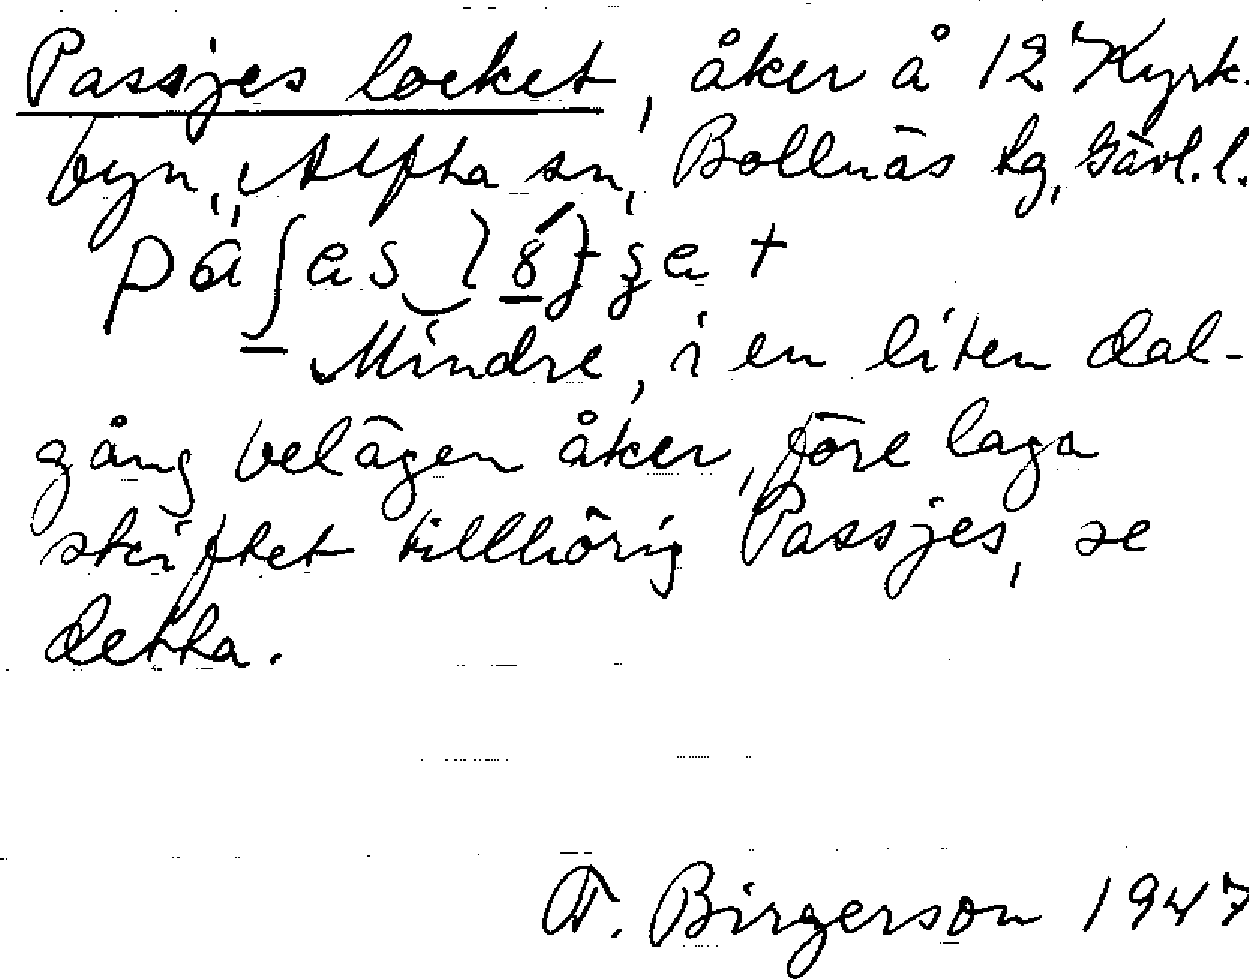 Passjes locket, åker å 12 Kyrk-
byn, Alfta sn, Bollnäs tg, Gävl. l.
Mindre, i en liten dal-
gång belägen åker, före laga
skiftet tillhörig Passjes, se
detta.
F. Birgerson 1947